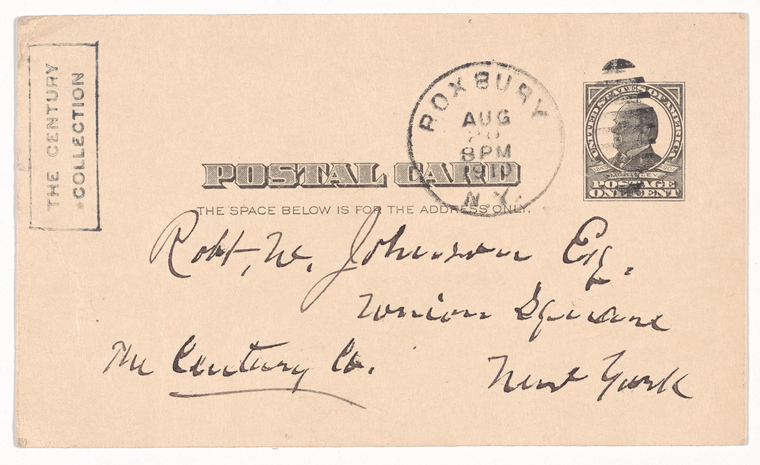 THE CENTURY
COLLECTION
ROXBURY
AUG
8 PM
1910
N.Y.
UNITED STATES OF AMERICA
POSTAGE
ONE CENT
POSTAL CARD
THE SPACE BELOW IS FOR THE ADDRESS ONLY.
Robt. W. Johnson Esq.
Union Square
The Century Co.
New York